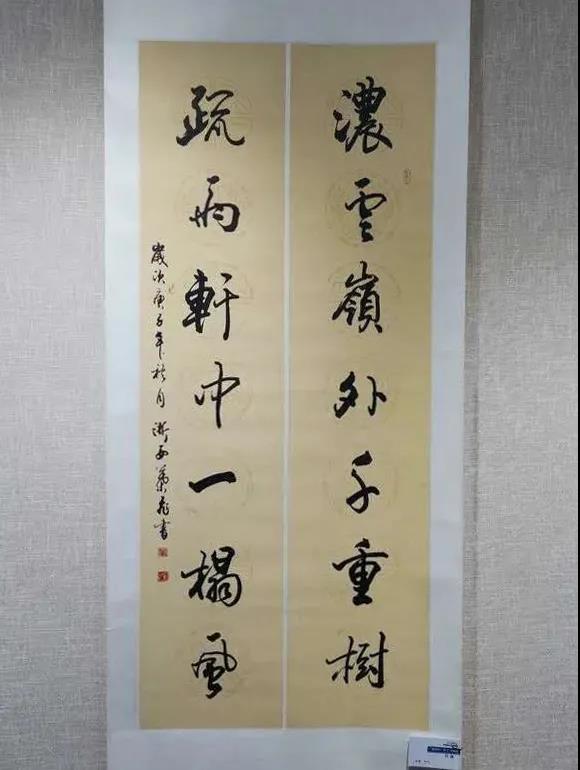 濃雲嶺外千重樹
疏雨軒中一榻風
歲次庚子年秋月 書